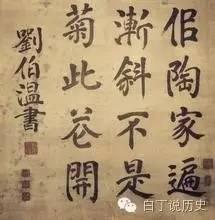 佀陶家遍
漸斜不是
菊此花開
劉伯温書
白丁说历史